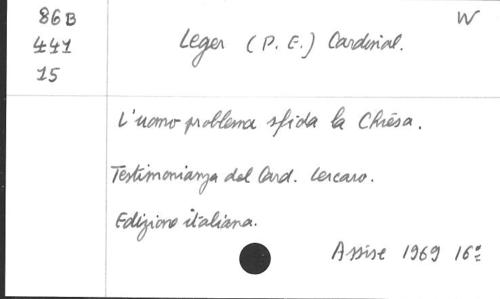 86B
W
441
Leger (P. E.) Cardinal.
15
L'uomo problema sfida la Chiesa.
Testimonianza del Card. Lercaro.
Edizione italiana.
Assise 1969 16º